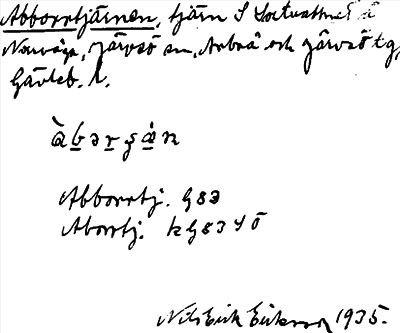 Abborrtjärnen, tjärn S
Norränge, Järvsö sn, Arbrå och Järvsö tg,
Gävleb. l.
àbərʂǽn
Abborrtj. G83
Aborrtj. kG83 4 Ö
Nils Erik Eriksson 1935.